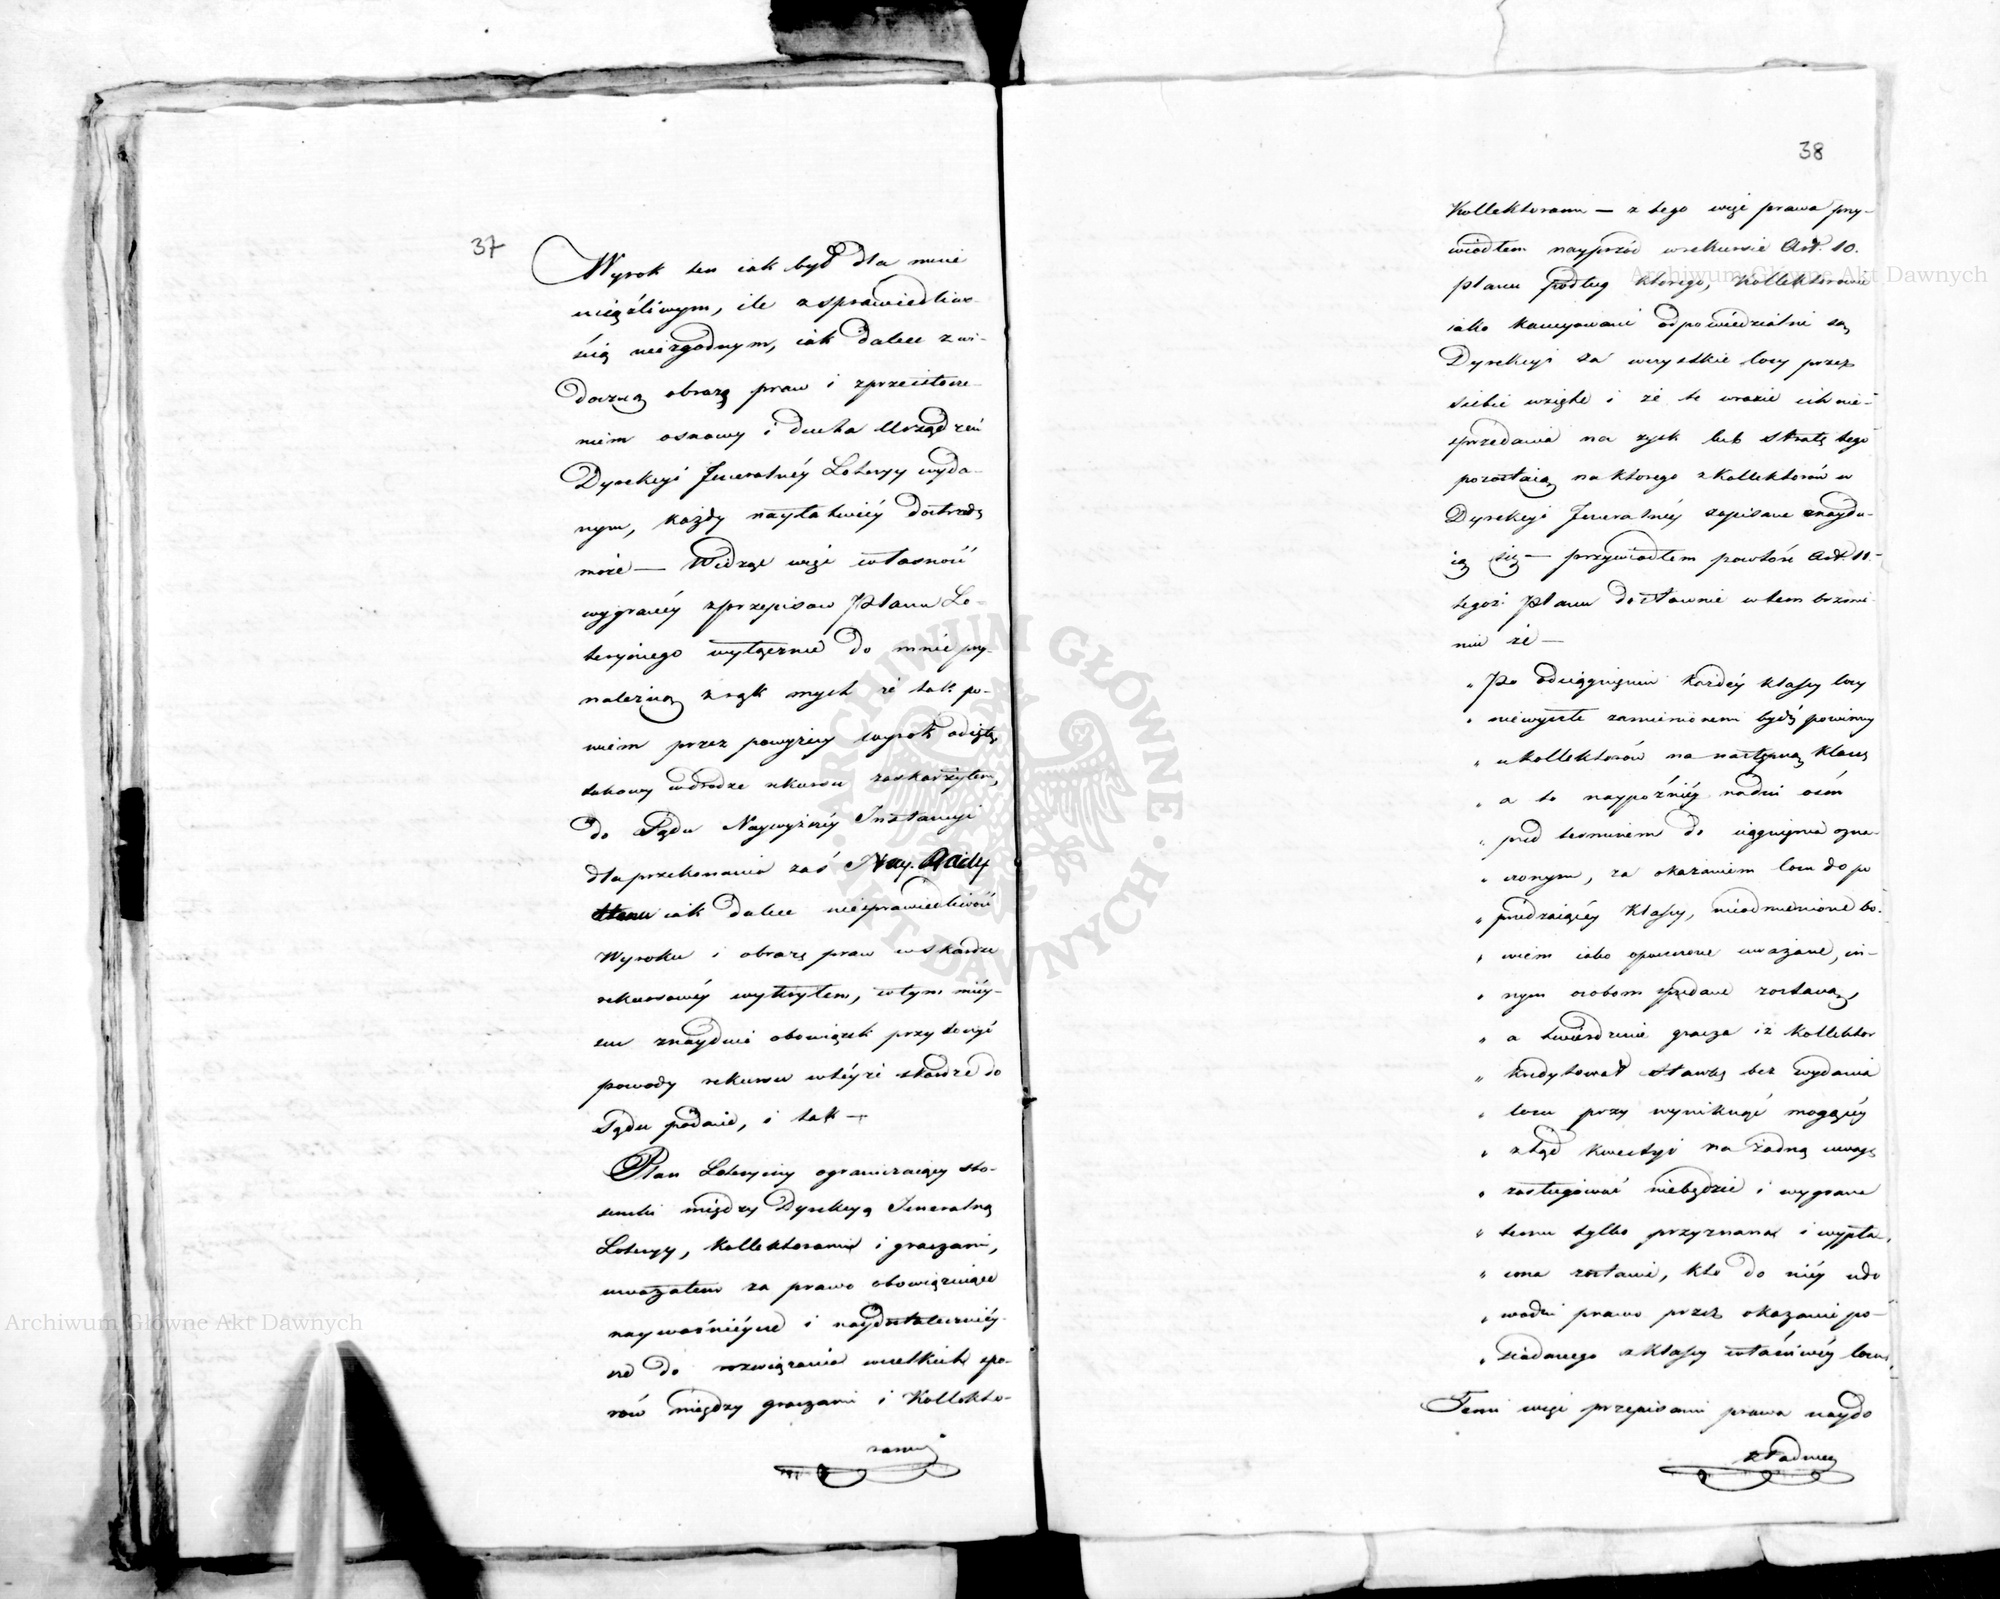 37
Wyrok ten iak był dla mnie
uciążliwym, ile z sprawiedliwo-
ścią niezgodnym, iak dalece z wi-
doczną obrazą praw i zprzeistocze-
niem osnowy i ducha Urządzeń
Dyrekcyi Jeneralnéy Loteryi wyda-
nym, każdy nayłatwiéy dostrzedz
może — Widząc więc własność
wygranéy z przepisów Planu Lo-
teryinego wyłącznie do mnie przy-
należną z rąk mych że tak po-
wiem przez powyższy wyrok odiętą
takowy w drodze rekursu zaskarżyłem,
do Sądu Naywyższéy Instancyi
dla przekonania zaś Nay. Rady
Stanu iak dalece niesprawiedliwość
Wyroku i obrazę praw w skardze
rekursowéy wytknąłem, w tym miéy-
scu znayduię obowiązek przytoczyć
powody rekursu w téyże skardze do
Sądu podanie, i tak —
Plan Loteryiny ograniczaiący sto-
sunki między Dyrekcyą Jeneralną
Loteryi, Kollektorami i graczami,
uważałem za prawo obowiązuiące
nayważnieysze i naydostatecznieysze
do rozwiązania wszelkich spo-
rów między graczami i Kollekto-
rami
38
Kollektorami — z tego więc prawa przy-
wiodłem nayprzód w rekursie Art. 10.
planu podług którego, Kollektorowie
iako kaucyowani odpowiedzialni są
Dyrekcyi za wszystkie losy przez
siebie wzięte i że te w razie ich nie-
sprzedania na zysk lub stratę tego
pozostaią na którego z Kollektorów w
Dyrekcyi Jeneralnéy zapisane znaydu-
ią się — przywiodłem powtóre Art. 11.
tegoż Planu dosłownie w tem brzmie-
niu że —
„ Po odciągnieniu każdéy klassy losy
„ niewyszłe zamienionemi bydź powinny
„ u kollektorów na następną klassę
„ a to naypóźniéy na dni ośm
„ przed terminem do ciągnienia ozna-
„ czonym, za okazaniem losu do po
„ przedzaiącéy klassy, nieodmienione bo-
„ wiem iako opuszczone uważane, in-
„ nym osobom sprzedane zostaną,
„ a twierdzenie gracza iż kollektor
„ kredytował stawkę bez wydania
„ losu przy wyniknąć mogącéy
„ ztąd kwestyi na żadną uwagę
„ zasługiwać niebędzie i wygrana
„ temu tylko przyznana i wypła-
„ cona zostanie, kto do niéy udo
„ wodni prawo przez okazanie po-
„ siadanego z klassy właściwéy losu,
Temi więc przepisami prawa naydo
kładniey